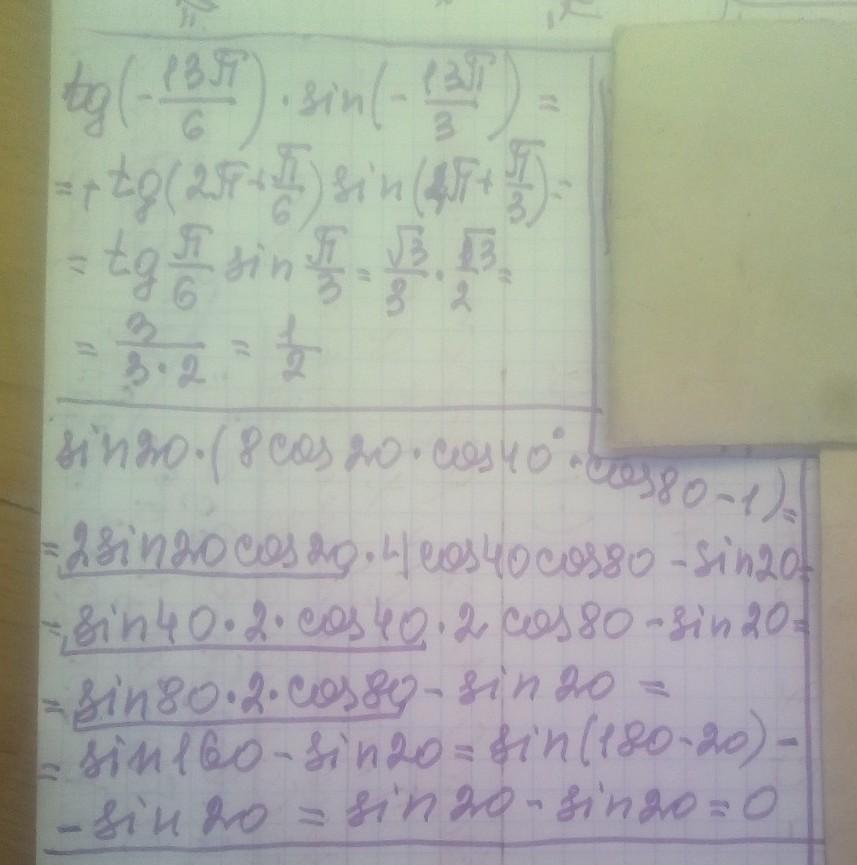 tg(-13π/6) · sin(-13π/3) =
= + tg(2π+π/6) sin(4π+π/3) =
= tg π/6 sin π/3 = √3/3 · √3/2 =
= 3/(3·2) = 1/2
sin20·(8cos20·cos40°·cos80-1)=
=2sin20cos20·4cos40cos80-sin20=
=sin40·2·cos40·2cos80-sin20=
=sin80·2·cos80-sin20=
=sin160-sin20=sin(180-20)-
-sin20=sin20-sin20=0